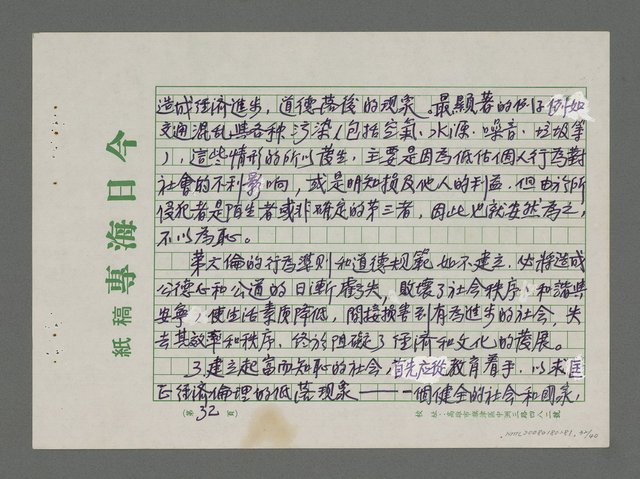 造成经济進步，道德落後的现象。最顯著的例子例如
交通混乱與各种污染(包括空氣、水源、噪音、垃圾等
)，這些情形的所以發生，主要是因為低估個人行為對
社會的不利影响，或是明知損及他人的利益，但由於所
侵犯者是陌生者或非確定的第三者，因此也就安然為之，
不以為恥。
第六倫的行為準則和道德规範如不建立，必將造成
公德心和公道的日漸喪失，敗壞了社会秩序、和諧與
安寧，使生活素质降低，間接損害到有為進步的社会，失
去其效率和秩序，终於阻礙了经济和文化的發展。
3.建立起富而知恥的社会，首先应從教育着手，以求匡
正经济倫理的低落现象——一個健全的社会和國家，
(第 32 頁)
今日海專 稿紙
校址：高雄市旗津區中洲三路四八二號